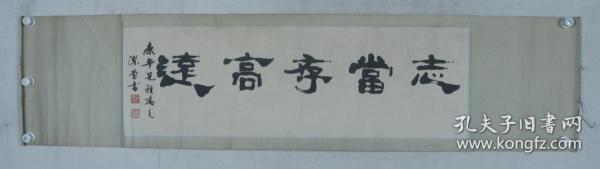 志當存高遠
康年兄雅屬
潔萱書
孔夫子旧书网
www.kongfz.com